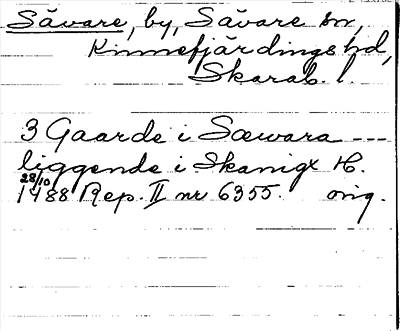 Sävare, by, Sävare sn,
Kinnefjärdings hd,
Skarab. l.
3 Gaarde i Sæwara ---
liggende i Skanigx H.
28/10 1488 Rep. II nr 6355. orig.